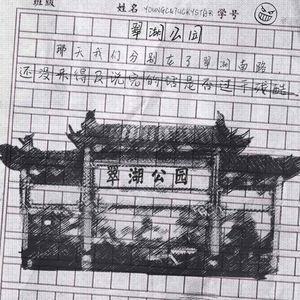 班级 姓名 学号
翠湖公园
那天我们分别在了翠湖南路
还没来得及说完的话是否过于残酷
翠湖公园